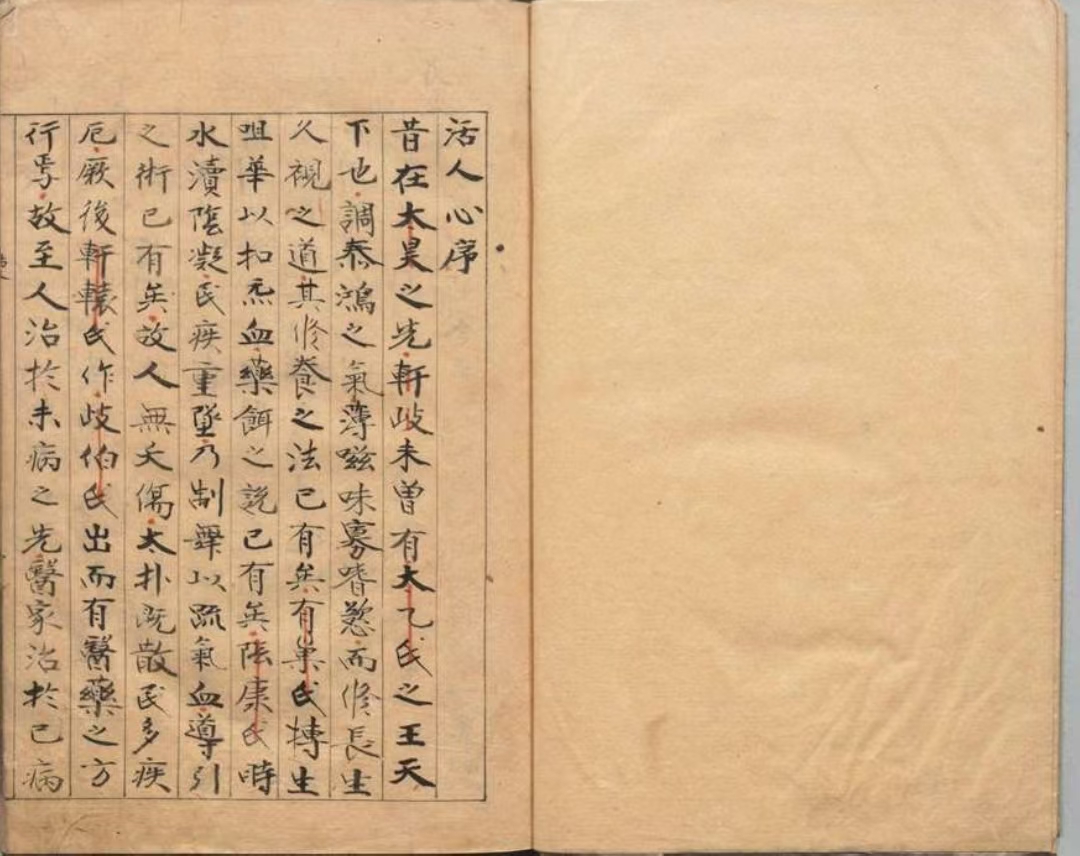 活人心序
昔在太昊之先軒岐未曾有太乙氏之王天
下也調泰鴻之氣薄嗞味寡嗜慾而修長生
久視之道其修養之法已有矣有巢氏摶生
咀華以和炁血藥餌之說已有矣陰康氏時
水瀆陰凝民疾重墜乃制舞以疏氣血導引
之術已有矣故人無夭傷太朴既散民多疾
厄厥後軒轅氏作岐伯氏出而有醫藥之方
行焉故至人治於未病之先醫家治於已病